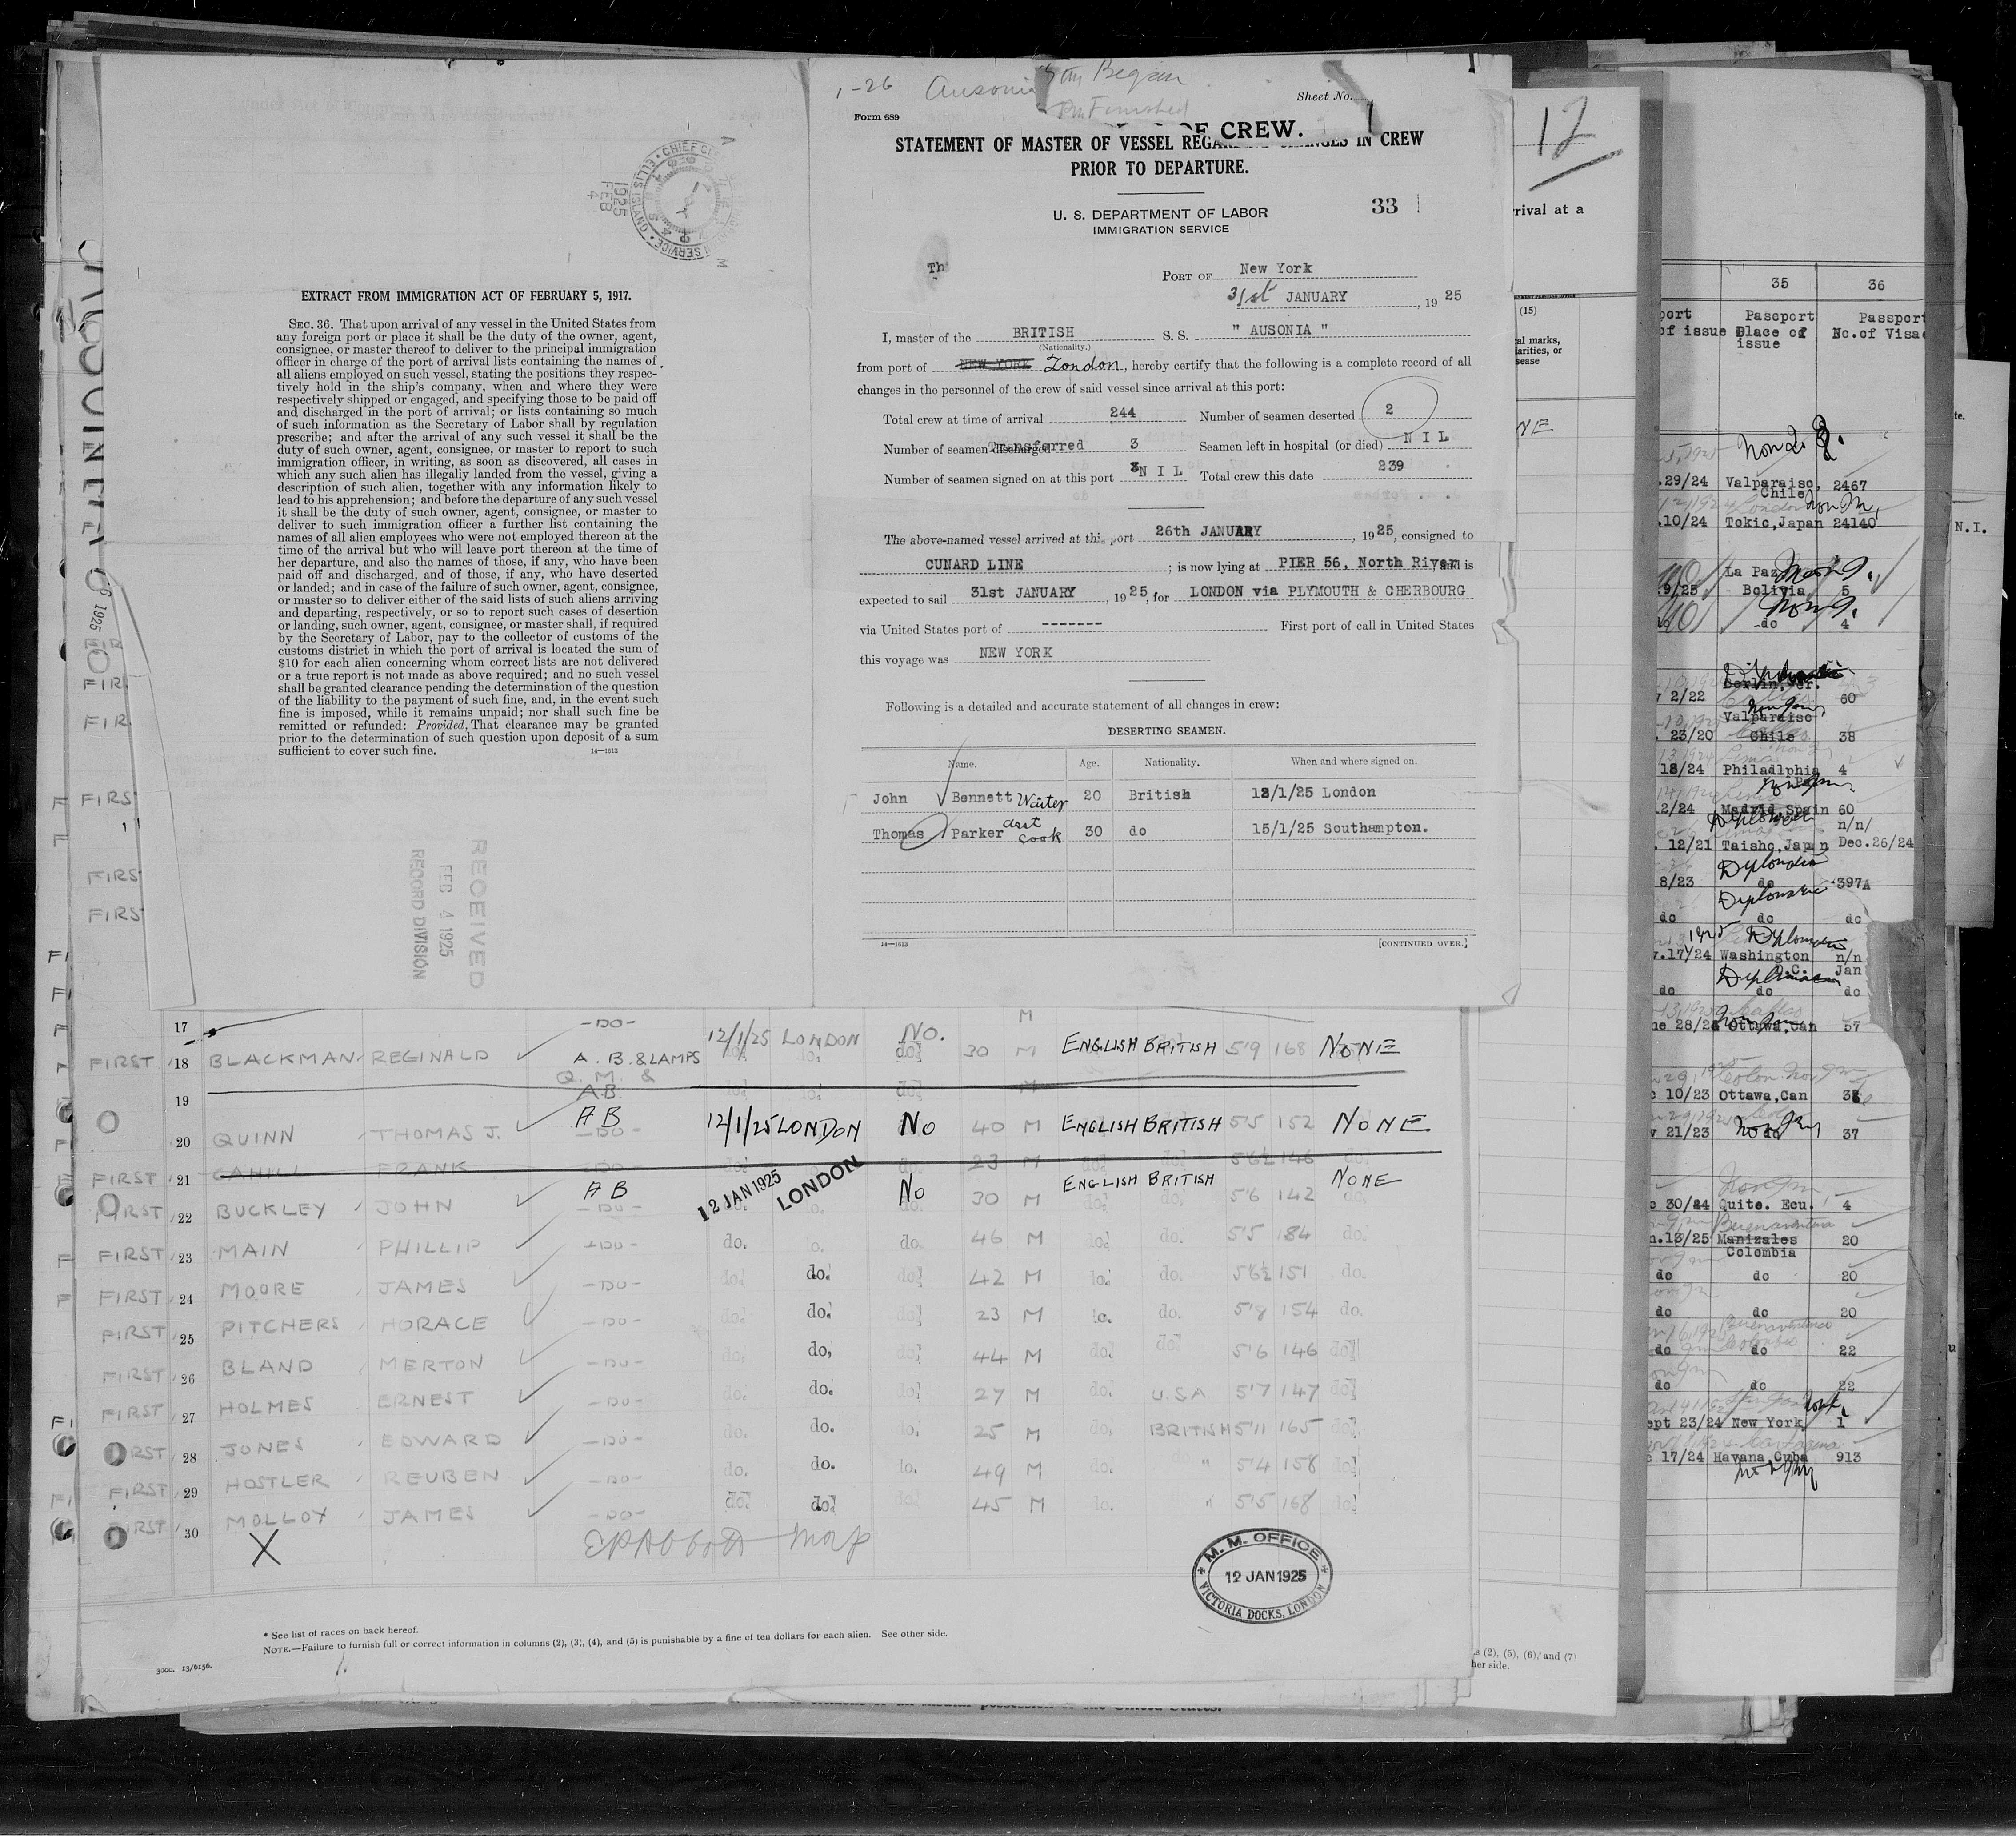 EXTRACT FROM IMMIGRATION ACT OF FEBRUARY 5, 1917.
SEC. 36. That upon arrival of any vessel in the United States from
any foreign port or place it shall be the duty of the owner, agent,
consignee, or master thereof to deliver to the principal immigration
officer in charge of the port of arrival lists containing the names of
all aliens employed on such vessel, stating the positions they respec-
tively hold in the ship's company, when and where they were
respectively shipped or engaged, and specifying those to be paid off
and discharged in the port of arrival; or lists containing so much
of such information as the Secretary of Labor shall by regulation
prescribe; and after the arrival of any such vessel it shall be the
duty of such owner, agent, consignee, or master to report to such
immigration officer, in writing, as soon as discovered, all cases in
which any such alien has illegally landed from the vessel, giving a
description of such alien, together with any information likely to
lead to his apprehension; and before the departure of any such vessel
it shall be the duty of such owner, agent, consignee, or master to
deliver to such immigration officer a further list containing the
names of all alien employees who were not employed thereon at the
time of the arrival but who will leave port thereon at the time of
her departure, and also the names of those, if any, who have been
paid off and discharged, and of those, if any, who have deserted
or landed; and in case of the failure of such owner, agent, consignee,
or master so to deliver either of the said lists of such aliens arriving
and departing, respectively, or so to report such cases of desertion
or landing, such owner, agent, consignee, or master shall, if required
by the Secretary of Labor, pay to the collector of customs of the
customs district in which the port of arrival is located the sum of
$10 for each alien concerning whom correct lists are not delivered
or a true report is not made as above required; and no such vessel
shall be granted clearance pending the determination of the question
of the liability to the payment of such fine, and, in the event such
fine is imposed, while it remains unpaid; nor shall such fine be
remitted or refunded: Provided, That clearance may be granted
prior to the determination of such question upon deposit of a sum
sufficient to cover such fine.
14—1613
1925 FEB 4
RECEIVED
FEB 4 1925
RECORD DIVISION
1-26 Ausonia Began
Finished
Sheet No. 1
Form 689
OF CREW.
STATEMENT OF MASTER OF VESSEL REGARDING CHANGES IN CREW
PRIOR TO DEPARTURE.
U. S. DEPARTMENT OF LABOR
IMMIGRATION SERVICE
33
Th
PORT OF New York
31st JANUARY, 1925
I, master of the BRITISH S. S. " AUSONIA "
(Nationality.)
from port of NEW YORK London, hereby certify that the following is a complete record of all
changes in the personnel of the crew of said vessel since arrival at this port:
Total crew at time of arrival 244 Number of seamen deserted 2
Number of seamen discharged Transferred 3 Seamen left in hospital (or died) NIL
Number of seamen signed on at this port NIL Total crew this date 239
The above-named vessel arrived at this port 26th JANUARY, 1925, consigned to
CUNARD LINE; is now lying at PIER 56, North River and is
expected to sail 31st JANUARY, 1925, for LONDON via PLYMOUTH & CHERBOURG
via United States port of ------- First port of call in United States
this voyage was NEW YORK
Following is a detailed and accurate statement of all changes in crew:
DESERTING SEAMEN.
Name. Age. Nationality. When and where signed on.
John Bennett Waiter 20 British 12/1/25 London
Thomas Parker asst cook 30 do 15/1/25 Southampton.
14—1613 [CONTINUED OVER.]
17 —DO— M
FIRST 18 BLACKMAN REGINALD A.B. & LAMPS 12/1/25 LONDON NO. 30 M ENGLISH BRITISH 5'9 168 NONE
Q.M. &
19 AB
20 QUINN THOMAS J. AB 12/1/25 LONDON NO 40 M ENGLISH BRITISH 5'5 152 NONE
FIRST 21 CAHILL FRANK —DO— 23 M 5'6½ 146
FIRST 22 BUCKLEY JOHN AB 12 JAN 1925 LONDON NO 30 M ENGLISH BRITISH 5'6 142 NONE
FIRST 23 MAIN PHILLIP —DO— do. do. do. 46 M do. do. 5'5 184 do.
FIRST 24 MOORE JAMES —DO— do. do. do. 42 M do. do. 5'6½ 151 do.
FIRST 25 PITCHERS HORACE —DO— do. do. do. 23 M do. do. 5'8 154 do.
FIRST 26 BLAND MERTON —DO— do. do. do. 44 M do. do. 5'6 146 do.
FIRST 27 HOLMES ERNEST —DO— do. do. do. 27 M do. U.S.A 5'7 147 do.
FIRST 28 JONES EDWARD —DO— do. do. do. 25 M do. BRITISH 5'11 165 do.
FIRST 29 HOSTLER REUBEN —DO— do. do. do. 49 M do. " 5'4 158 do.
FIRST 30 MOLLOY JAMES —DO— do. do. do. 45 M do. " 5'5 168 do.
X
M. M. OFFICE
12 JAN 1925
VICTORIA DOCKS, LONDON
* See list of races on back hereof.
NOTE.—Failure to furnish full or correct information in columns (2), (3), (4), and (5) is punishable by a fine of ten dollars for each alien. See other side.
3000. 13/6136.
12
rrival at a
(15)
al marks,
larities, or
sease
NE
s (2), (5), (6), and (7)
her side.
35 36
port Passport Passport
of issue Place of No. of Visa
issue
.29/24 Valparaiso, 2467
Chile
.10/24 Tokio, Japan 24140
La Paz
9/25 Bolivia 5
do 4
Berlin, Ger.
v 2/22 60
Valparaiso
. 23/20 Chile 38
18/24 Philadlphia 4
Pa
2/24 Madrid, Spain 60
n/n/
. 12/21 Taisho, Japan Dec.26/24
Diplomatic
8/23 do 397A
Diplomatic
do do do
Diplomatic
v.17/24 Washington n/n
D.C. Jan
do do do
ne 28/24 Ottawa, Can 57
c 10/23 Ottawa, Can
v 21/23 do 37
c 30/24 Quito. Ecu. 4
Buenaventura
n.13/25 Manizales 20
Colombia
do do 20
do do 20
do do 22
do do 22
ept 23/24 New York, 1
c 17/24 Havana, Cuba 913
N.I.